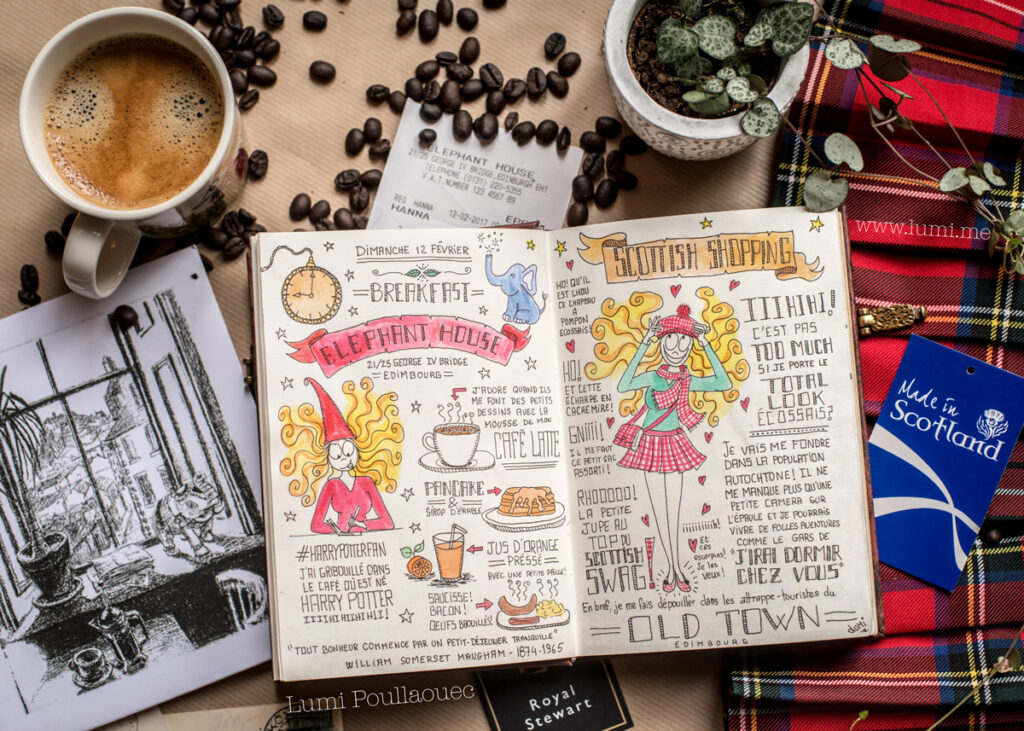 ELEPHANT HOUSE
21/25 GEORGE IV BRIDGE, EDINBURGH EH1
TELEPHONE (0131) 220-5355
V.A.T. NUMBER 123 4567 89
REG HANNA
HANNA 12-02-2017
www.lumi.me
DIMANCHE 12 FÉVRIER
BREAKFAST
ELEPHANT HOUSE
21/25 GEORGE IV BRIDGE
EDIMBOURG
J'ADORE QUAND ILS
ME FONT DES PETITS
DESSINS AVEC LA
MOUSSE DE MON
CAFÉ LATTE
PANCAKE
&
SIROP D'ÉRABLE
JUS D'ORANGE
PRESSÉ
AVEC UNE PETITE PAILLE!
SAUCISSE!
BACON!
OEUFS BROUILLÉS!
#HARRYPOTTERFAN
J'AI GRIBOUILLÉ DANS
LE CAFÉ OÙ EST NÉ
HARRY POTTER
IIIHIHIHIHI!
"TOUT BONHEUR COMMENCE PAR UN PETIT-DÉJEUNER TRANQUILLE"
WILLIAM SOMERSET MAUGHAM - 1874-1965
SCOTTISH SHOPPING
HO! QU'IL
EST CHOU
CE CHAPEAU
À
POMPON
ECOSSAIS!
HO!
ET CETTE
ÉCHARPE EN
CACHEMIRE!
GNIII!
IL ME FAUT
CE PETIT SAC
ASSORTI!
RHOOOOO!
LA PETITE
JUPE AU
TOP DU
SCOTTISH
SWAG!
IIIHIHI!
C'EST PAS
TOO MUCH
SI JE PORTE LE
TOTAL
LOOK
ÉCOSSAIS?
JE VAIS ME FONDRE
DANS LA POPULATION
AUTOCHTONE! IL NE
ME MANQUE PLUS QU'UNE
PETITE CAMERA SUR
L'ÉPAULE ET JE POURRAIS
VIVRE DE FOLLES AVENTURES
COMME LE GARS DE
"J'IRAI DORMIR
CHEZ VOUS"
ET
CES
ESCARPINS!
JE LES
VEUX!
En bref, je me fais dépouiller dans les attrape-touristes du
OLD TOWN
EDIMBOURG
Lumi
Made in
Scotland
Lumi Poullaouec
Royal
Stewart